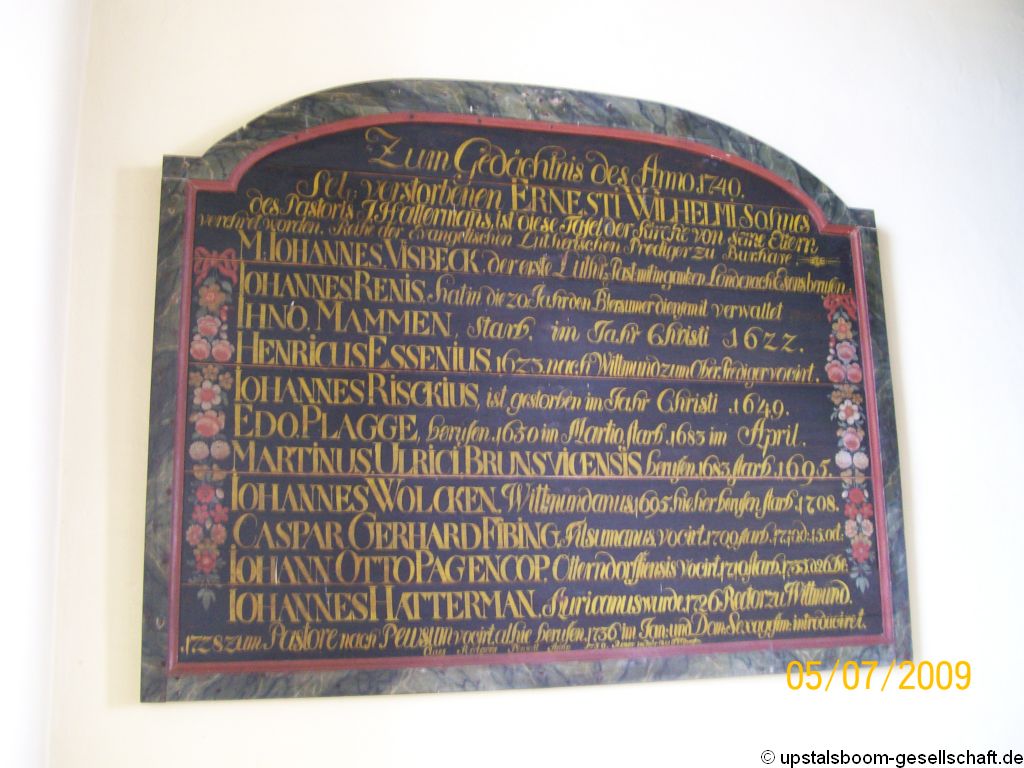 Zum Gedächtnis des Anno 1740.
Sel. verstorbenen ERNESTI WILHELMI Sohnes
des Pastoris J. Hattermans, ist diese Tafel der Kirche von seine Eltern
verehret worden. Reihe der Evangelischen Lutherischen Prediger zu Burhave.
M. IOHANNES VISBECK. der erste Luthr. Past. mit ganken Lande nach Esens berufen
IOHANNES RENIS. hat in die 20 Jahr den verwaltet
IHNO. MAMMEN, starb. im Jahr Christi 1622.
HENRICUS ESSENIUS. 1623. nach Wittmund zum Ober. Prediger vocirt.
IOHANNES RISCKIUS, ist gestorben im Jahr Christi .1649.
EDO. PLAGGE, berufen. 1650 im Martio, starb. 1683 im April.
MARTINUS. ULRICI. BRUNSVICENSIS berufen 1683. starb. 1695.
IOHANNES WOLCKEN. Wittmundanus, 1695. hieher berufen, starb. 1708.
CASPAR GERHARD FIBING, Pilsumanus. vocirt. 1709. starb.
IOHANN OTTO PAGENCOP. Otterndorffensis vocirt. starb.
IOHANNES HATTERMAN. Auricanus wurde. 1726. Rector zu Wittmund.
.1728 zum Pastore nach Pewsum vocirt. alhie berufen. 1736 im Jan: und Dom: Sexagesim: introduciret.
05/07/2009
© upstalsboom-gesellschaft.de